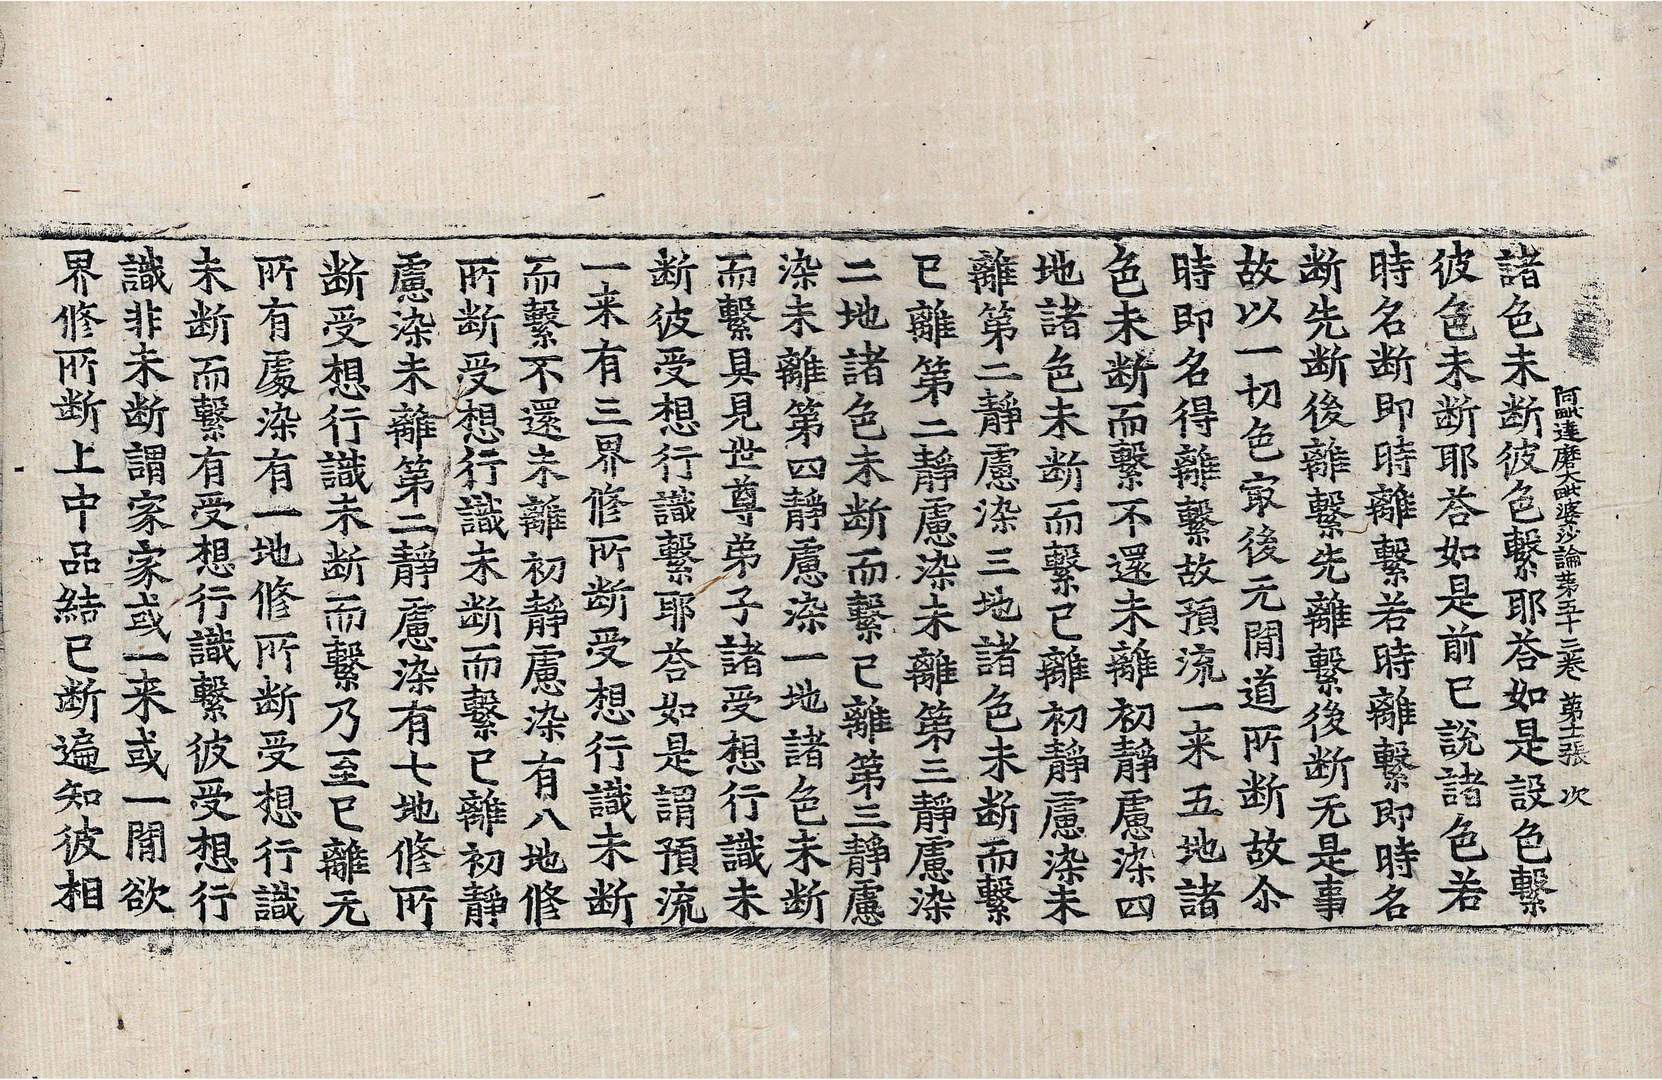 阿毗達磨大毗婆沙論苐五十三卷 第十二張 次
諸色未断彼色繫耶荅如是設色繫
彼色未断耶荅如是前已說諸色若
時名断即時離繫若時離繫即時名
断先断後離繫先離繫後断无是事
故以一切色㝡後无閒道所断故尒
時即名得離繫故預流一来五地諸
色未断而繫不還未離初靜慮染四
地諸色未断而繫已離初靜慮染未
離第二靜慮染三地諸色未断而繫
已離第二靜慮染未離第三靜慮染
二地諸色未断而繫已離第三靜慮
染未離第四靜慮染一地諸色未断
而繫具見世尊弟子諸受想行識未
断彼受想行識繫耶荅如是謂預流
一来有三界修所断受想行識未断
而繫不還未離初靜慮染有八地修
所断受想行識未断而繫已離初靜
慮染未離第二靜慮染有七地修所
断受想行識未断而繫乃至已離无
所有處染有一地修所断受想行識
未断而繫有受想行識繫彼受想行
識非未断謂家家或一来或一閒欲
界修所断上中品結已断遍知彼相